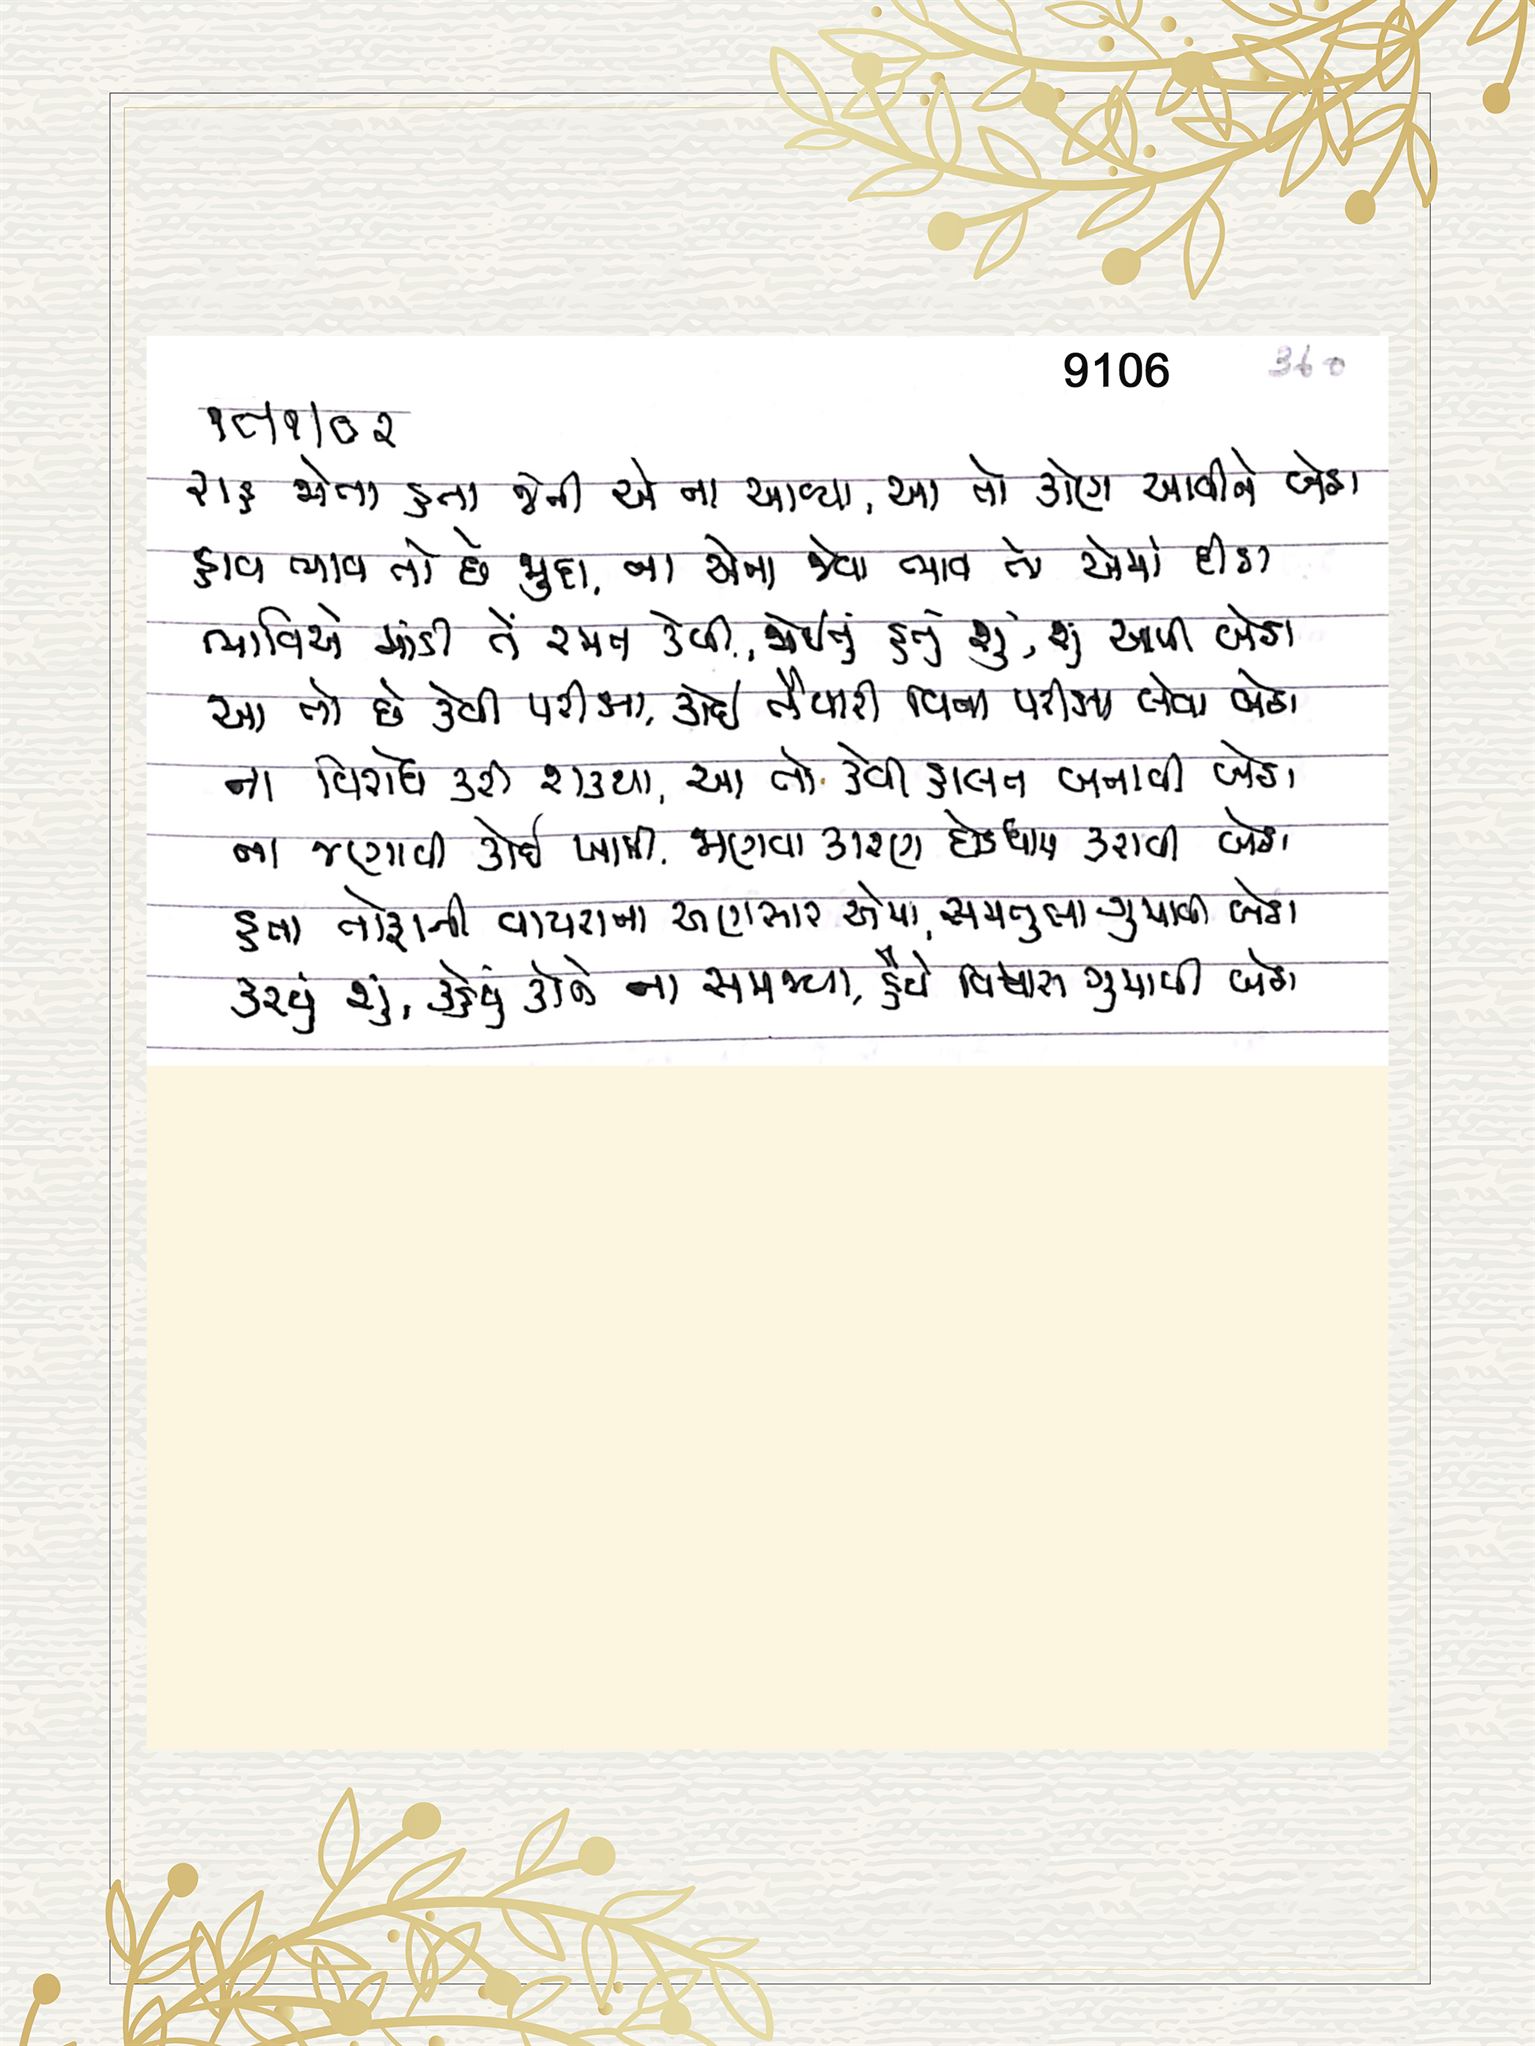 9106
૩૬૦
૧૮/૧/૦૨
રાહ જોતા હતા જેની એ ના આવ્યા, આ તો કોણ આવીને બેઠા
હાવ ભાવ તો છે જુદા, ના એના જેવા ભાવ તો એમાં દીઠા
ભાવિએ માંડી તેં રમત કેવી, જોઈતું હતું શું, શું આપી બેઠા
આ તો છે કેવી પરીક્ષા, કોઈ તૈયારી વિના પરીક્ષા લેવા બેઠા
ના વિરોધ કરી શક્યા, આ તો કેવી હાલત બનાવી બેઠા
ના જણાવી કોઈ ખામી, જાણવા કારણ દોડધામ કરાવી બેઠા
હતા તોફાની વાયરાના અણસાર એમાં, સમતુલા ગુમાવી બેઠા
કરવું શું, કહેવું કોને ના સમજ્યા, હૈયે વિશ્વાસ ગુમાવી બેઠા